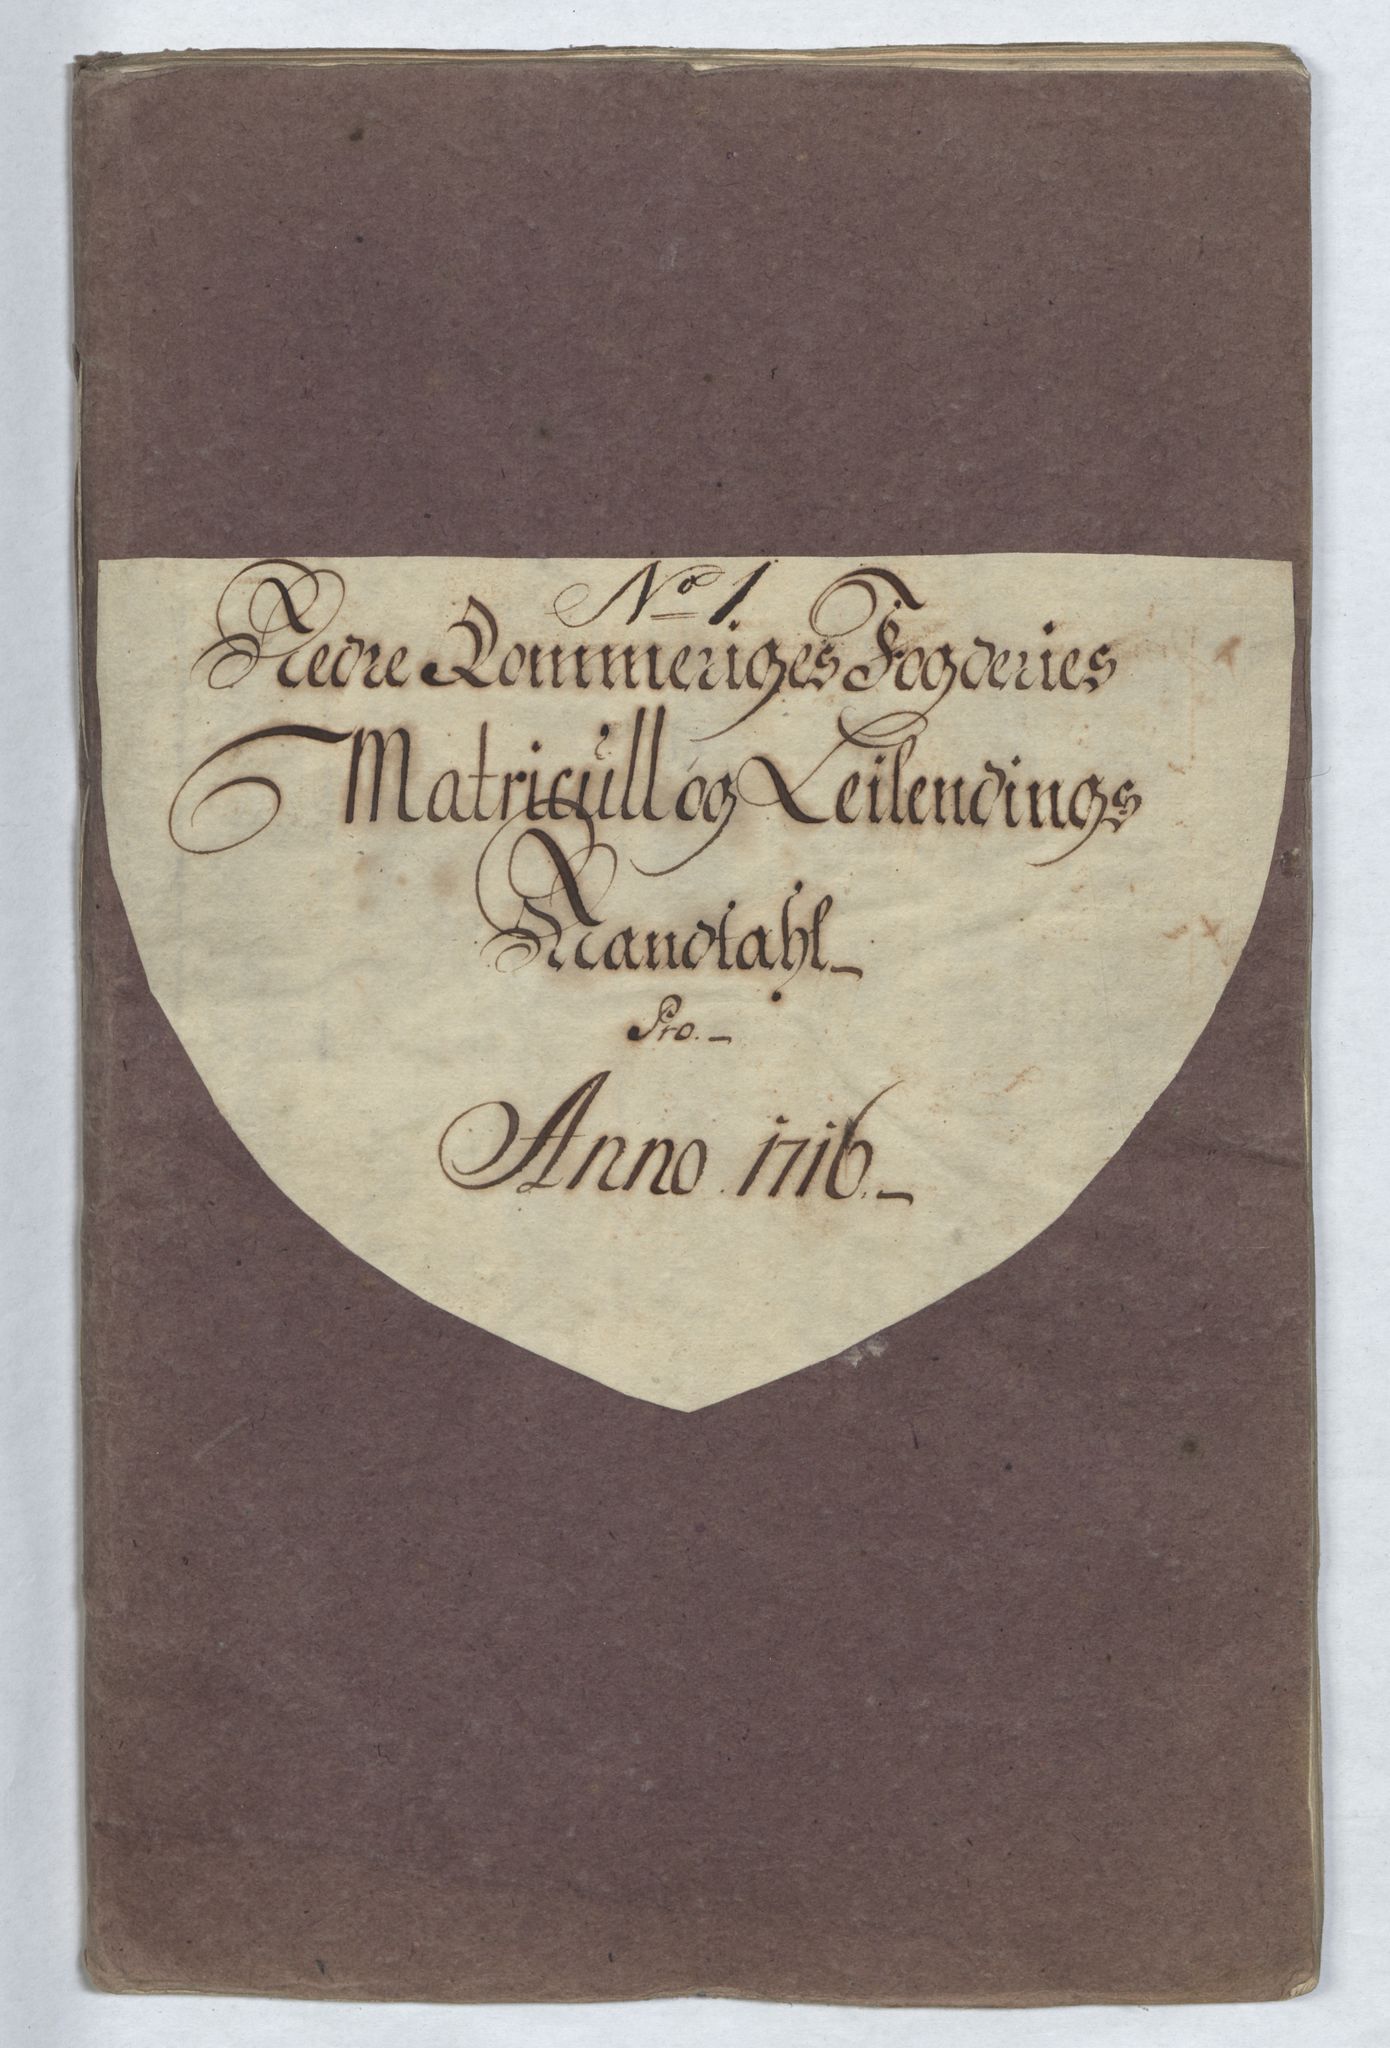 No 1.
Nedre Rommeriges Fogderies
Matricull og Leilendings
Mandtahl
Pro.
Anno 1716.